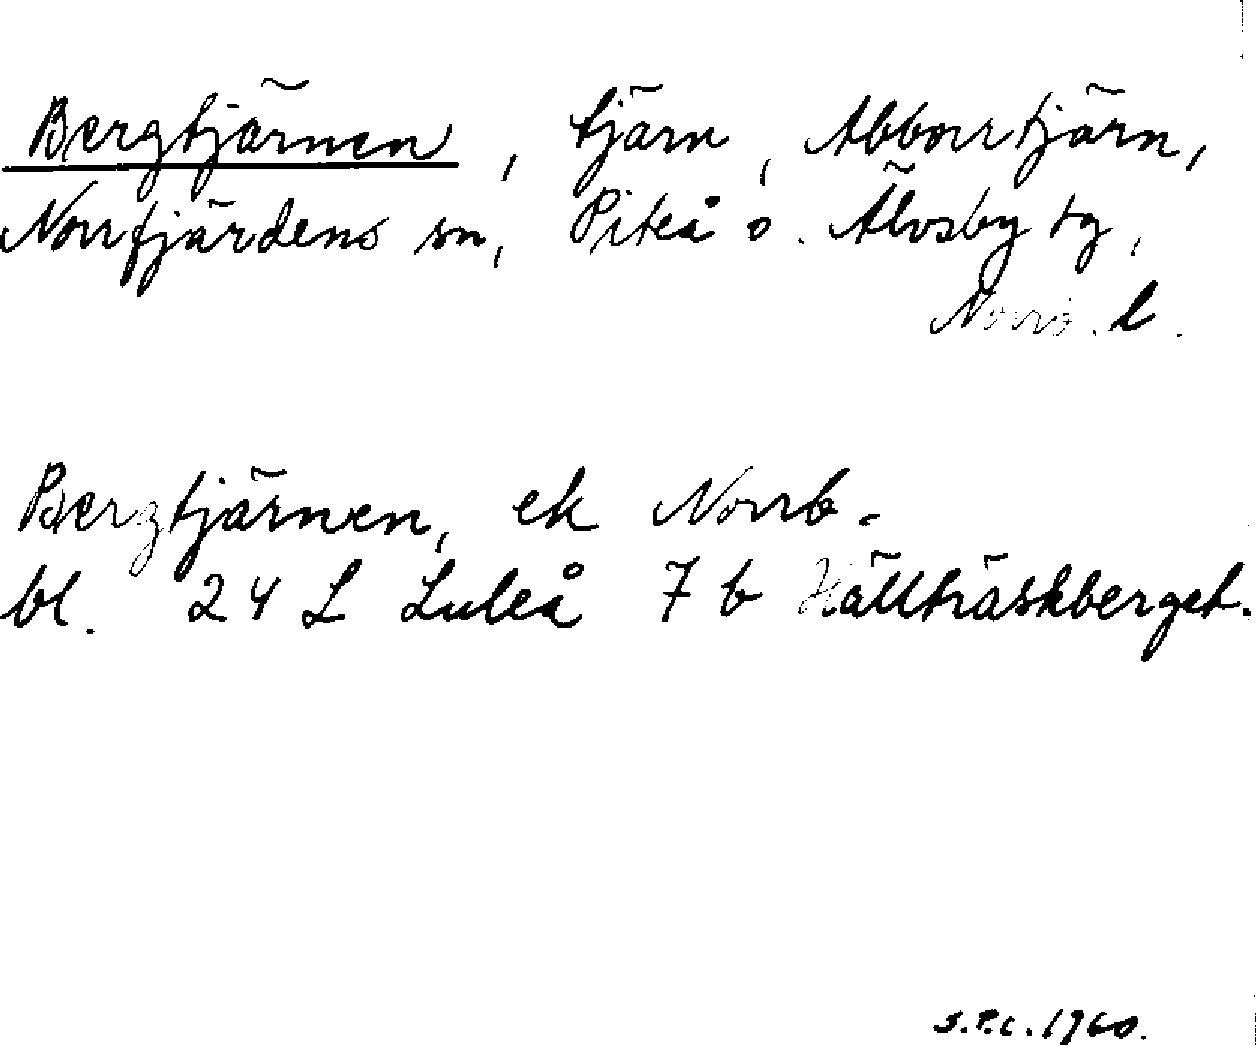 Bergtjärnen, tjärn, Abborrtjärn,
Norrfjärdens sn, Piteå o. Älvsby tg,
Norrb. l.
Bergtjärnen, ek Norrb.
bl. 24 L Luleå 7 b Hällträskberget.
S.P.C. 1960.